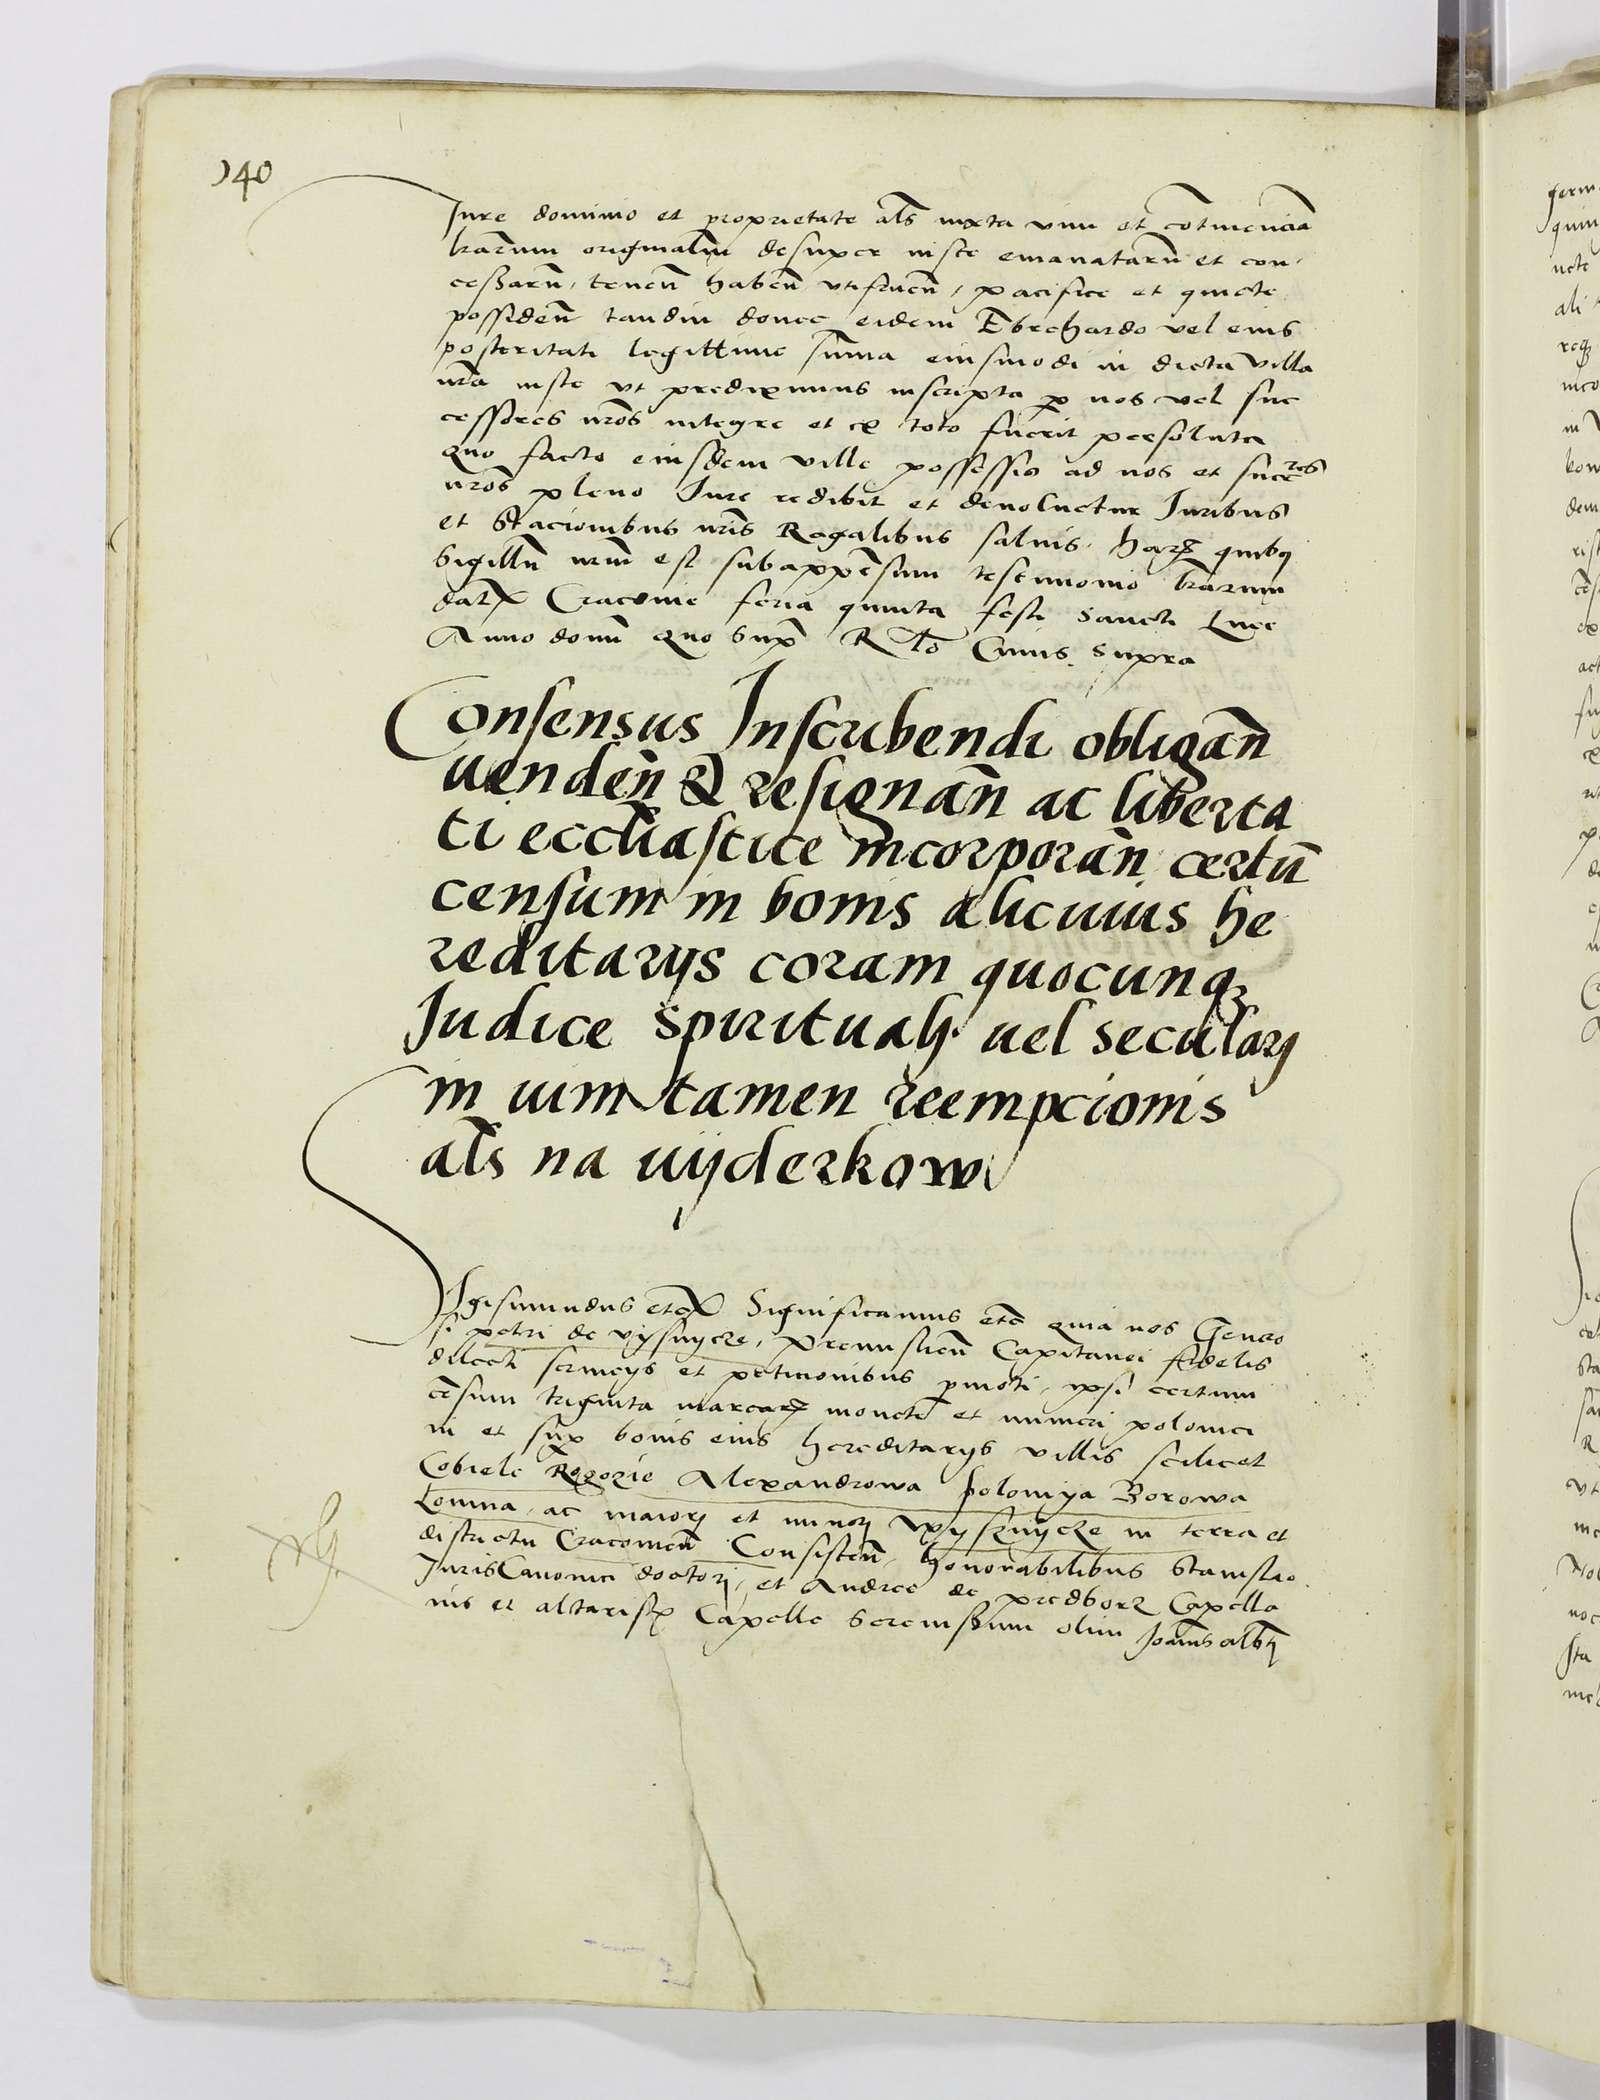 140
Jure dominio et proprietate als iuxta vim et continenciā
lrarum originaliū desuper iuste emanatarū et con
cessarū, tenenn̄ habenn̄ vtifruenn̄, pacifice et quiete
possidenn̄ tamdiu donec eidem Ebrehardo vel eius
posteritati legittime sūma eiusmodi in dicta villa
nrā iuste vt prediximus inscripta p nos vel suc
cessores nros integre et ex toto fuerit persoluta
quo facto eiusdem ville possessio ad nos et succres
nros pleno Jure redibit et deuoluetur Juribus
et Stacionibus nris Regalibus saluis, harꝫ quibꝯ
Sigillū nrm est subappensum testimonio lrarum
datꝫ Cracovie feria quinta festi sancti Luce
Anno domi quo supͣ Rlo Cuius supra
Consensus Inscribendi obligan̄
uenden̄ & resignan̄ ac liberta
ti eccliastice incorporan̄ certū
censum in bonis alicuius he
reditarijs coram quocunqꝫ
Judice spirituali uel seculari
in uim tamen reempcionis
als na uijderkow
Igismundus etcꝫ Significamus etc quia nos Genero
si petri de vysnycze, Premislien̄ Capitanei fidelis
dilecti seruicijs et peticionibus pmoti, ipsi certum
cēsum triginta marcarꝫ monete et numeri polonici
in et sup bonis eius hereditarijs villis scilicet
Cobiele Rogozie Alexandrowa polomya Borowa
Lomna, ac maiori et minori Wysznijcze in terra et
districtu Cracouien̄ Consisten̄, honorabilibus Stanislao
Juris Canonici doctori, et Andree de predborz Capella
nis et altaristꝫ Capelle Serenissimi olim Joānis albti